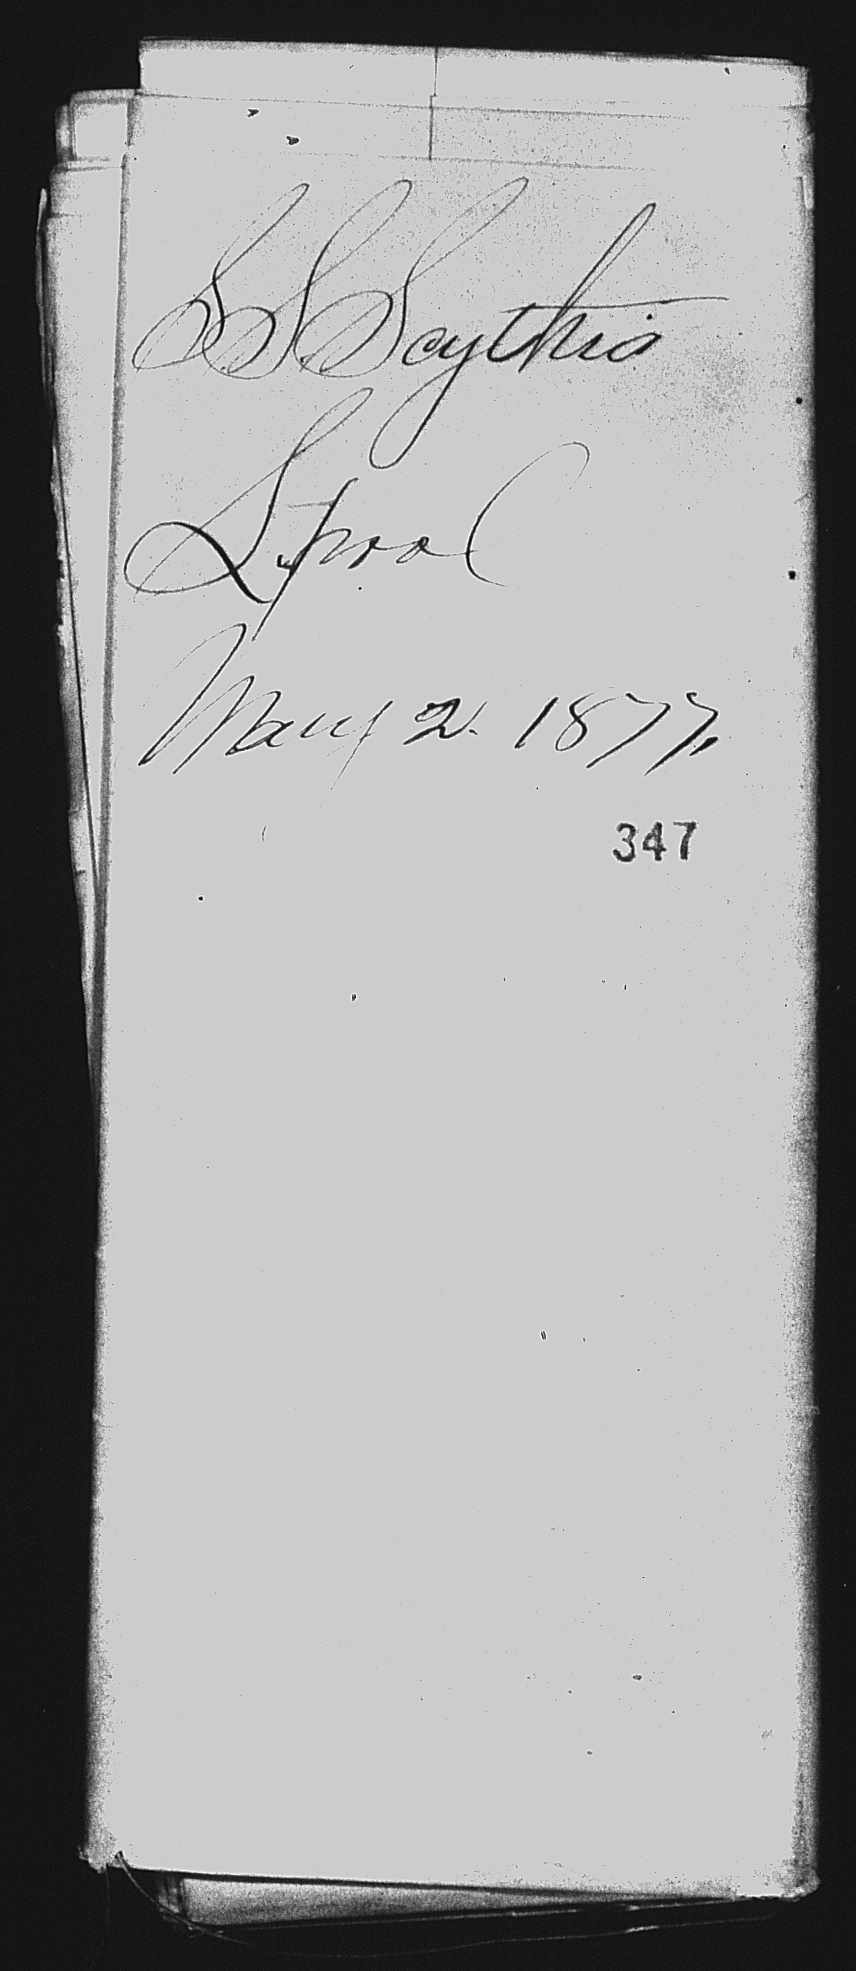 S S Scythia
L.pool
May 2. 1877.
347